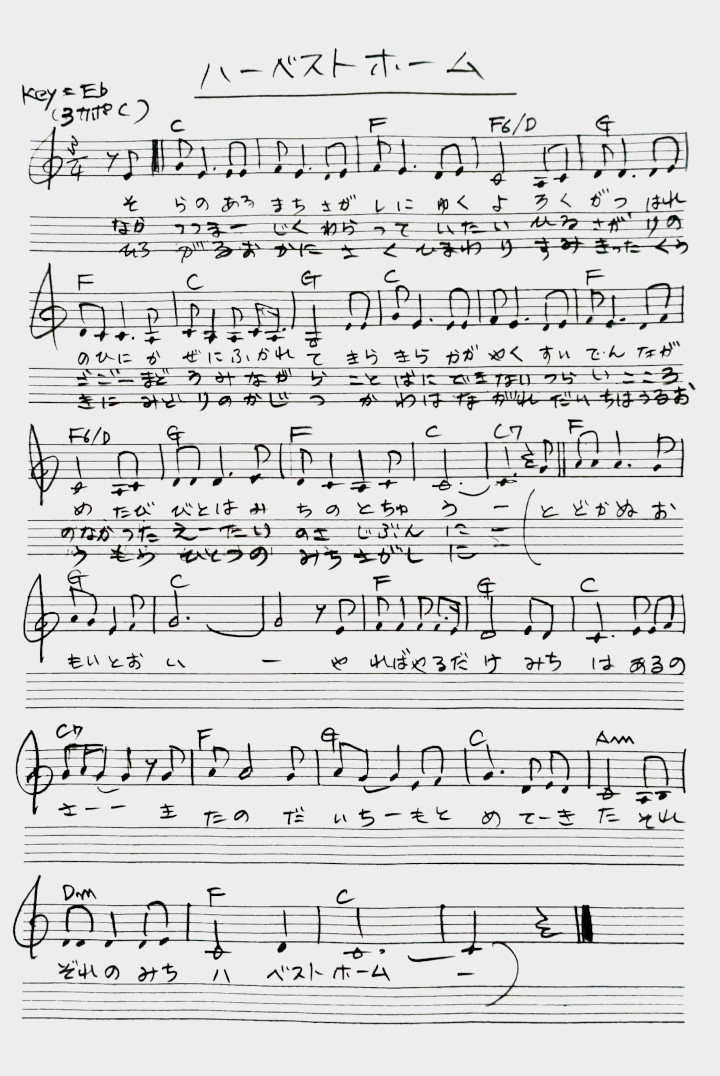 ハーベストホーム
Key = Eb
(3カポC)
C F F6/D G
3/4
そ らの ある まち さが しに ゆく よ ろく がつ はれ
なか つつまー じく わらっ て いたい ひる さが りの
ひろ がるおかに さ く ひまわ り すみ きった くう
F C G C F
のひに か ぜに ふかれ て きら きら かが やく すい でん なが
ごごーまど ろ み ながら こと ばに できない つら い こころ
きに みど りのかじ つ かわは な がれ だいちは うるお
F6/D G F C C7 F
め たび びとは み ちの とちゅ う ー と どかぬ お
のなかった えーたい のさ じぶん に ー
う もろ ひとつの みち さがし に ー
G C F G C
もいとお い ー や ればやるだ け みち は あるの
C7 F G C Am
さーー ま たの だ いちーもと め てーきた それ
Dm F C
ぞれの みち ハ ベスト ホーム ー